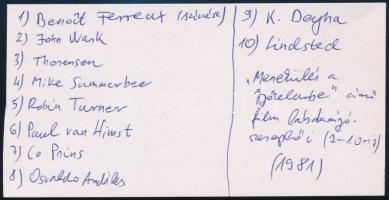 1) Benoît Ferreux (színész)
2) John Wark
3) Thoresen
4) Mike Summerbee
5) Robin Turner
6) Paul van Himst
7) Co Prins
8) Osvaldo Ardiles
9) K. Deyna
10) Lindsted
„Menekülés a
győzelembe" című
film labdarúgó-
szereplői (2-10-ig)
(1981)